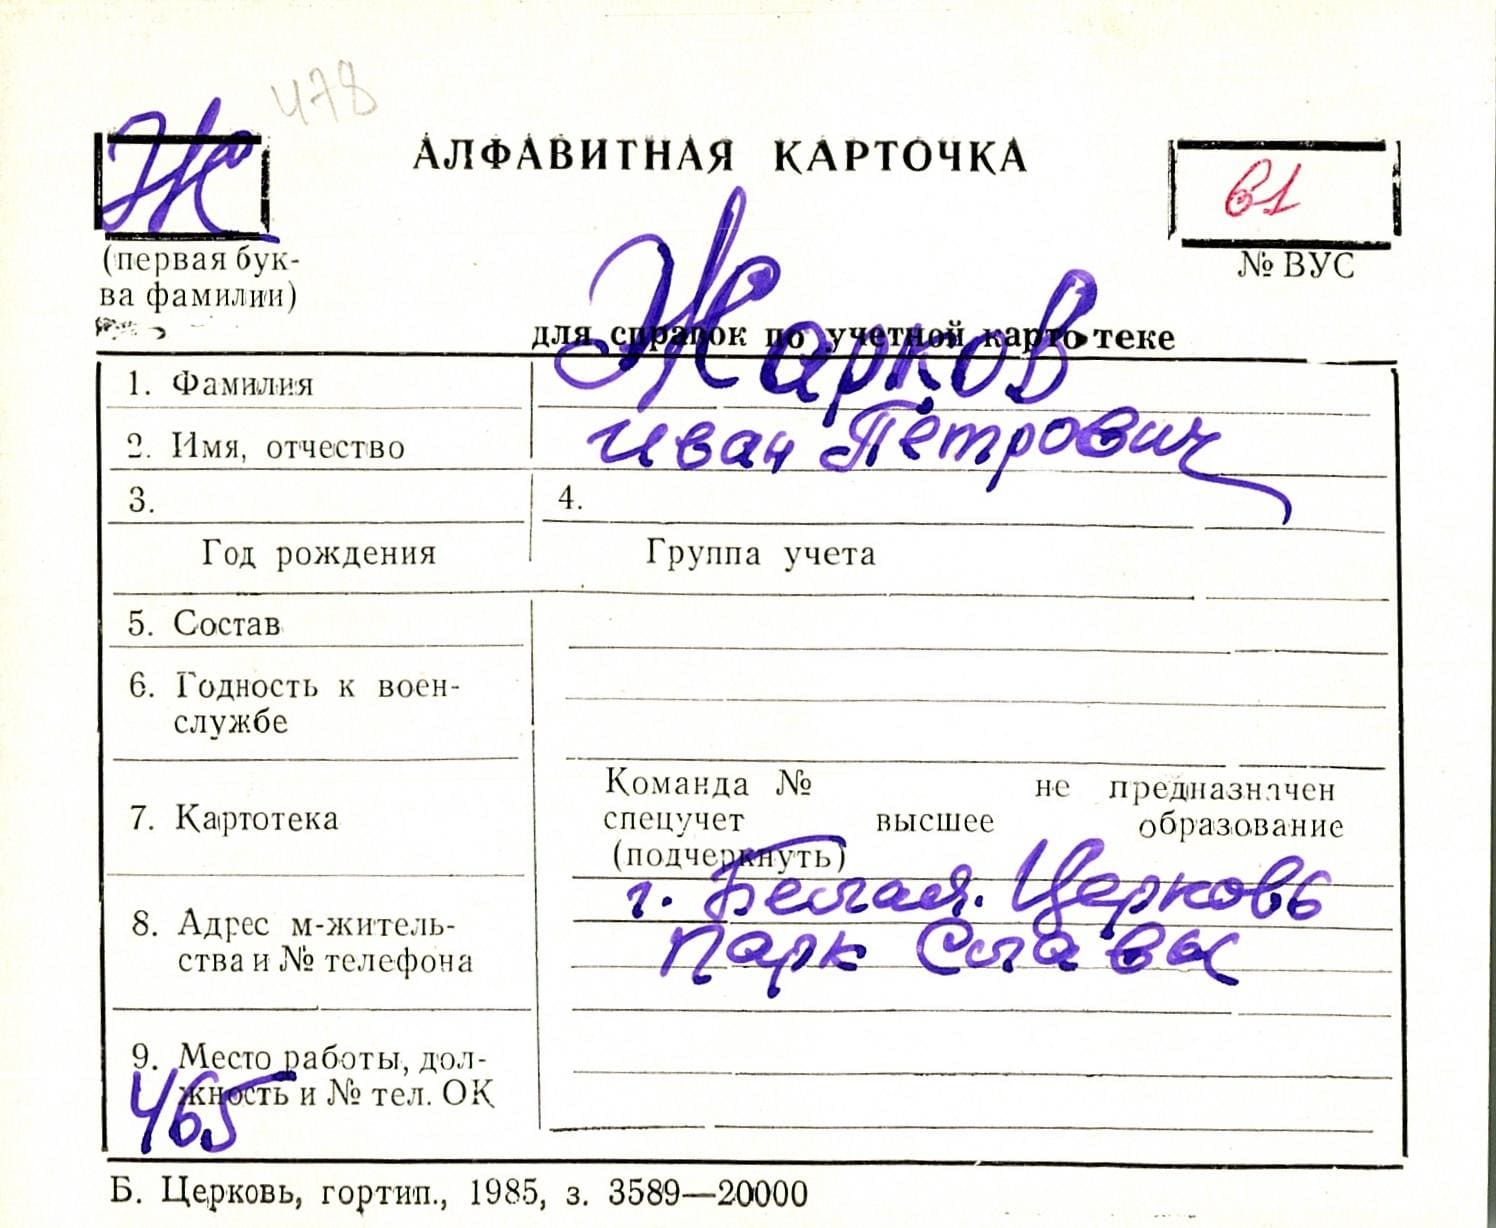 478
Ж
АЛФАВИТНАЯ КАРТОЧКА
61
(первая бук-
ва фамилии)
№ ВУС
для справок по учетной картотеке
1. Фамилия Жарков
2. Имя, отчество Иван Петрович
3. 4.
Год рождения Группа учета
5. Состав
6. Годность к воен-
службе
7. Картотека
Команда № не предназначен
спецучет высшее образование
(подчеркнуть)
8. Адрес м-житель-
ства и № телефона
г. Белая Церковь
Парк Славы
9. Место работы, дол-
жность и № тел. ОК
465
Б. Церковь, гортип., 1985, з. 3589—20000